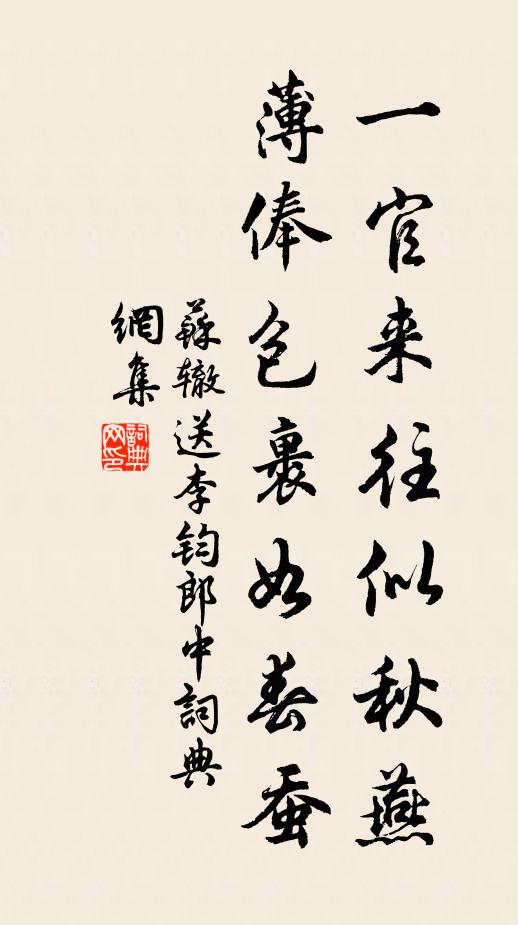 一官来往似秋燕
薄俸包裹如春蚕
蘇辙送李钧郎中詞典
網集
詞典
网印